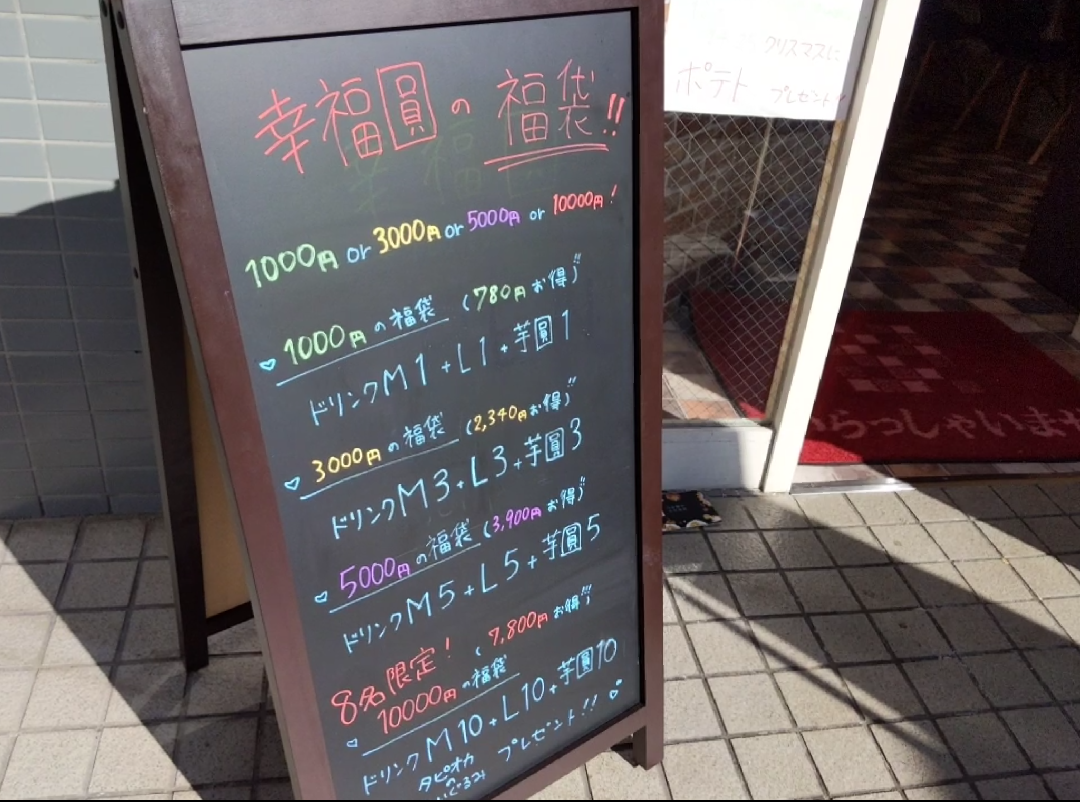 幸福圓の福袋!!
1000円 or 3000円 or 5000円 or 10000円!
1000円の福袋 (780円お得)!!
ドリンクM1+L1+芋圓1
3000円の福袋 (2,340円お得)!!
ドリンクM3+L3+芋圓3
5000円の福袋 (3,900円お得)!!
ドリンクM5+L5+芋圓5
8名限定! (7,800円お得)!!!
10000円の福袋
ドリンクM10+L10+芋圓10
タピオカ
ぬいぐるみ プレゼント!!
クリスマスに
ポテト プレゼント
いらっしゃいませ